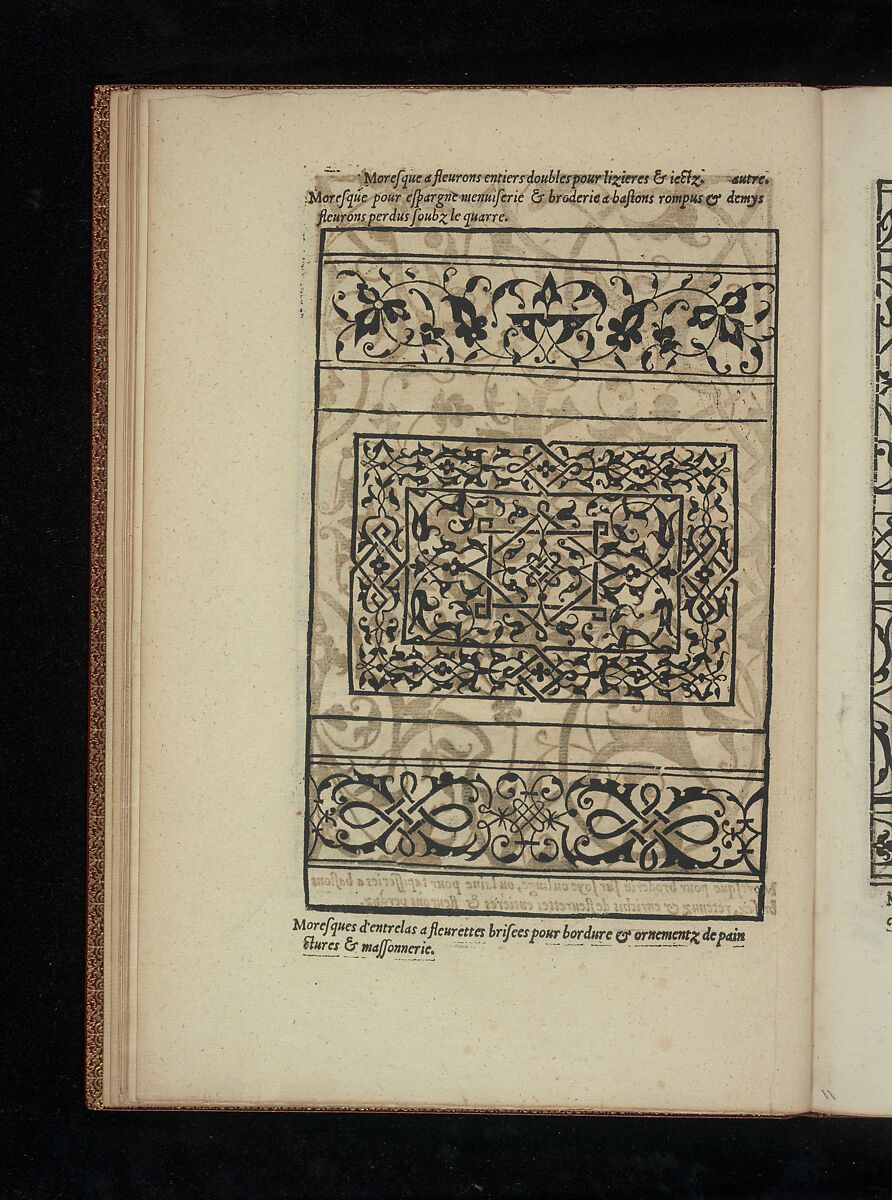 Moresque a fleurons entiers doubles pour lizieres & iectz. autre.
Moresque pour espargne menuiserie & broderie a bastons rompus & demys
fleurons perdus soubz le quarre.
Moresques d'entrelas a fleurettes brisees pour bordure & ornementz de pain
ctures & massonnerie.